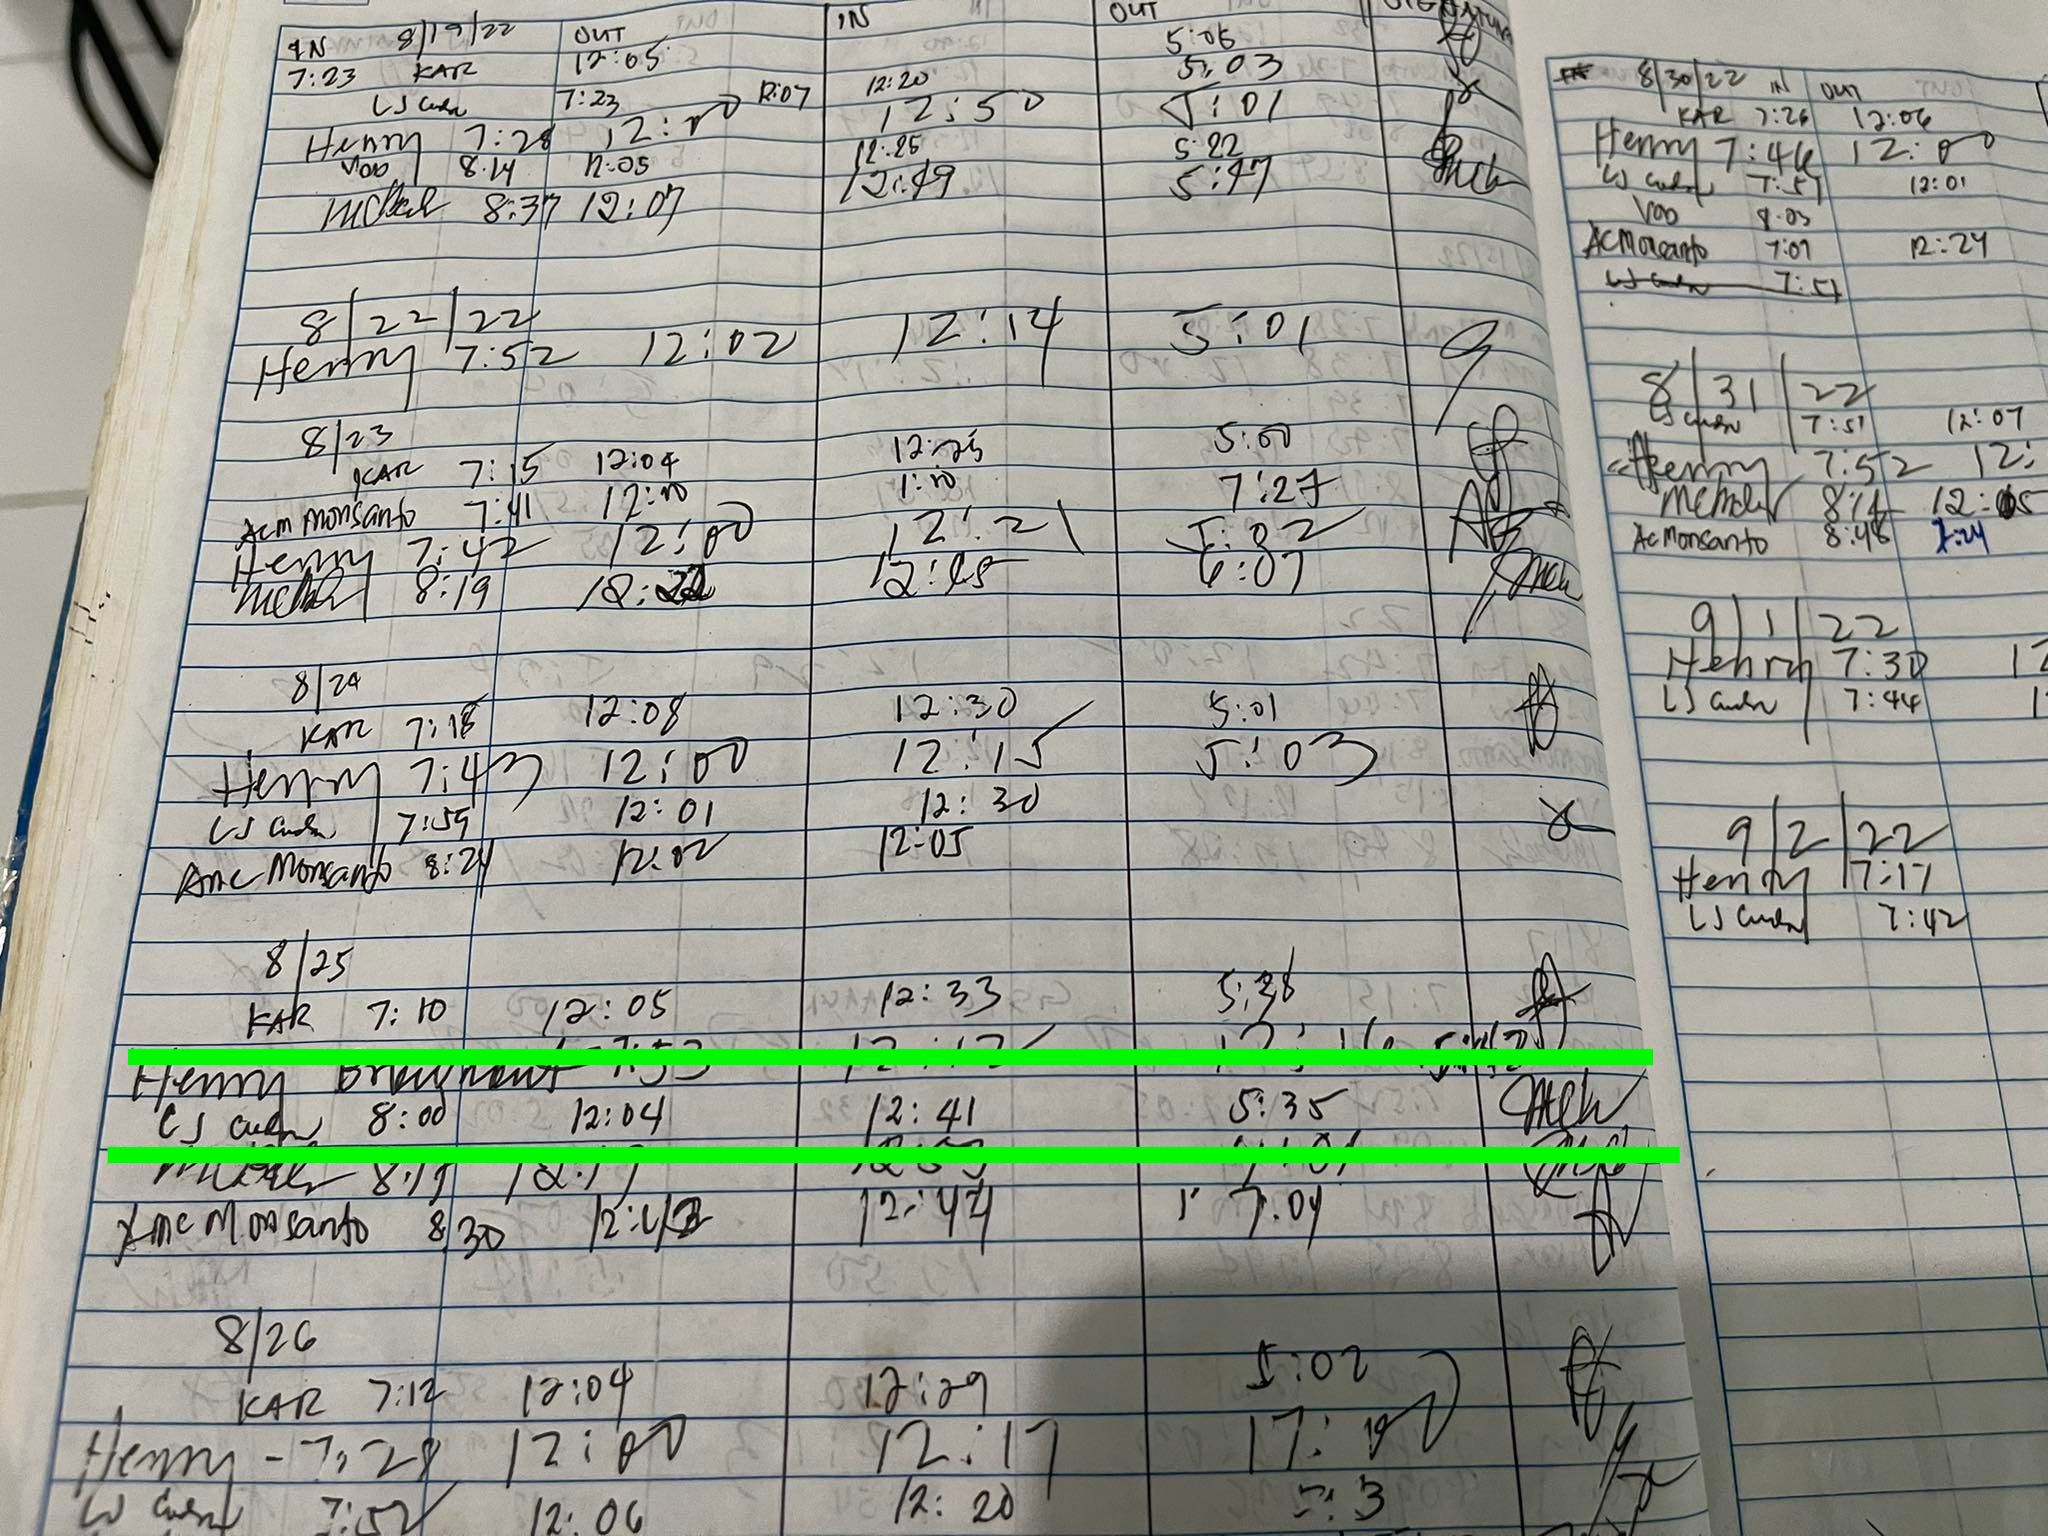 IN 8/19/22 OUT IN OUT
7:23 KAR 12:05 5:05
LJ 7:23 12:07 12:20 5:03
Henry 7:28 12:00 12:50 5:01
VOO 8:14 12:05 12:25 5:22
8:37 12:07 12:49 5:47
8/22/22
Henry 7:52 12:02 12:14 5:01
8/23
KAR 7:15 12:04 12:25 5:00
Acm Monsanto 7:41 12:10 1:10 7:27
Henry 7:42 12:00 12:21 5:02
8:19 6:07
8/24
KAR 7:18 12:08 12:30 5:01
Henry 7:43 12:00 12:15 5:03
LJ 7:59 12:01 12:30
Amc Monsanto 8:24 12:02 12:05
8/25
KAR 7:10 12:05 12:33 5:38
Henry
LJ 8:00 12:04 12:41 5:35
Amc Monsanto 8:30 12:44 7:04
8/26
KAR 7:12 12:04 12:29 5:02
Henry - 7:28 12:00 12:17 17:
LJ 7:52 12:06 12:20
8/30/22 IN OUT
KAR 7:26 12:06
Henry 7:46 12:00
LJ 7:57 12:01
VOO 8:03
AC Monsanto 7:07 12:24
LJ 7:57
8/31/22
LJ 7:51 12:07
Henry 7:52 12:
8:14 12:05
Ac Monsanto 8:48
9/1/22
Henry 7:30 12
LJ 7:44 1
9/2/22
Henry 7:17
LJ 7:42